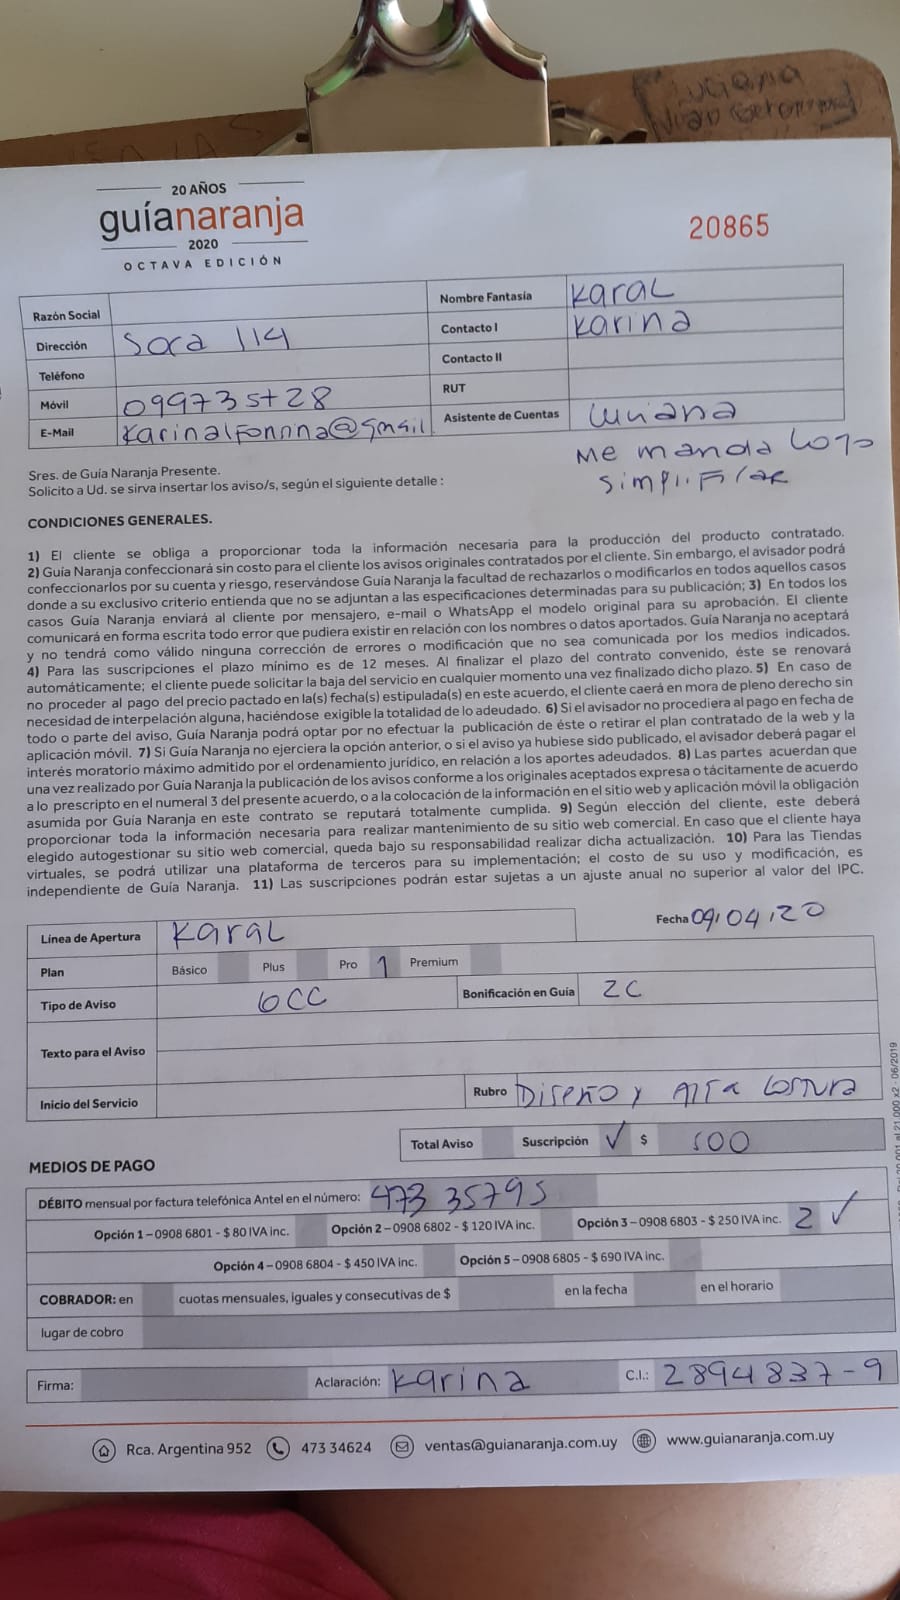 20 AÑOS
guíanaranja
2020
OCTAVA EDICIÓN
20865
Razón Social
Nombre Fantasía KaraL
Dirección Soca 114
Contacto I Karina
Teléfono
Contacto II
Móvil 099735728
RUT
E-Mail karinalfonnina@gmail
Asistente de Cuentas Luciana
Me manda logo
simplificar
Sres. de Guía Naranja Presente.
Solicito a Ud. se sirva insertar los aviso/s, según el siguiente detalle :
CONDICIONES GENERALES.
1) El cliente se obliga a proporcionar toda la información necesaria para la producción del producto contratado.
2) Guía Naranja confeccionará sin costo para el cliente los avisos originales contratados por el cliente. Sin embargo, el avisador podrá
confeccionarlos por su cuenta y riesgo, reservándose Guía Naranja la facultad de rechazarlos o modificarlos en todos aquellos casos
donde a su exclusivo criterio entienda que no se adjuntan a las especificaciones determinadas para su publicación; 3) En todos los
casos Guía Naranja enviará al cliente por mensajero, e-mail o WhatsApp el modelo original para su aprobación. El cliente
comunicará en forma escrita todo error que pudiera existir en relación con los nombres o datos aportados. Guía Naranja no aceptará
y no tendrá como válido ninguna corrección de errores o modificación que no sea comunicada por los medios indicados.
4) Para las suscripciones el plazo mínimo es de 12 meses. Al finalizar el plazo del contrato convenido, éste se renovará
automáticamente; el cliente puede solicitar la baja del servicio en cualquier momento una vez finalizado dicho plazo. 5) En caso de
no proceder al pago del precio pactado en la(s) fecha(s) estipulada(s) en este acuerdo, el cliente caerá en mora de pleno derecho sin
necesidad de interpelación alguna, haciéndose exigible la totalidad de lo adeudado. 6) Si el avisador no procediera al pago en fecha de
todo o parte del aviso, Guía Naranja podrá optar por no efectuar la publicación de éste o retirar el plan contratado de la web y la
aplicación móvil. 7) Si Guía Naranja no ejerciera la opción anterior, o si el aviso ya hubiese sido publicado, el avisador deberá pagar el
interés moratorio máximo admitido por el ordenamiento jurídico, en relación a los aportes adeudados. 8) Las partes acuerdan que
una vez realizado por Guía Naranja la publicación de los avisos conforme a los originales aceptados expresa o tácitamente de acuerdo
a lo prescripto en el numeral 3 del presente acuerdo, o a la colocación de la información en el sitio web y aplicación móvil la obligación
asumida por Guía Naranja en este contrato se reputará totalmente cumplida. 9) Según elección del cliente, este deberá
proporcionar toda la información necesaria para realizar mantenimiento de su sitio web comercial. En caso que el cliente haya
elegido autogestionar su sitio web comercial, queda bajo su responsabilidad realizar dicha actualización. 10) Para las Tiendas
virtuales, se podrá utilizar una plataforma de terceros para su implementación; el costo de su uso y modificación, es
independiente de Guía Naranja. 11) Las suscripciones podrán estar sujetas a un ajuste anual no superior al valor del IPC.
Fecha 09/04/20
Línea de Apertura KaraL
Plan Básico Plus Pro 1 Premium
Tipo de Aviso 6CC Bonificación en Guía 2C
Texto para el Aviso
Inicio del Servicio Rubro Diseño y Alta Costura
Total Aviso Suscripción ✓ $ 500
MEDIOS DE PAGO
DÉBITO mensual por factura telefónica Antel en el número: 473 35795
Opción 1 – 0908 6801 - $ 80 IVA inc. Opción 2 – 0908 6802 - $ 120 IVA inc. Opción 3 – 0908 6803 - $ 250 IVA inc. 2 ✓
Opción 4 – 0908 6804 - $ 450 IVA inc. Opción 5 – 0908 6805 - $ 690 IVA inc.
COBRADOR: en cuotas mensuales, iguales y consecutivas de $ en la fecha en el horario
lugar de cobro
Firma: Aclaración: Karina C.I.: 2894837-9
Rca. Argentina 952 473 34624 ventas@guianaranja.com.uy www.guianaranja.com.uy